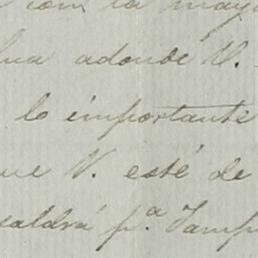 con la may
lua adonde V.
lo importante
ue V. esté de
saldrá p.ª Tamp